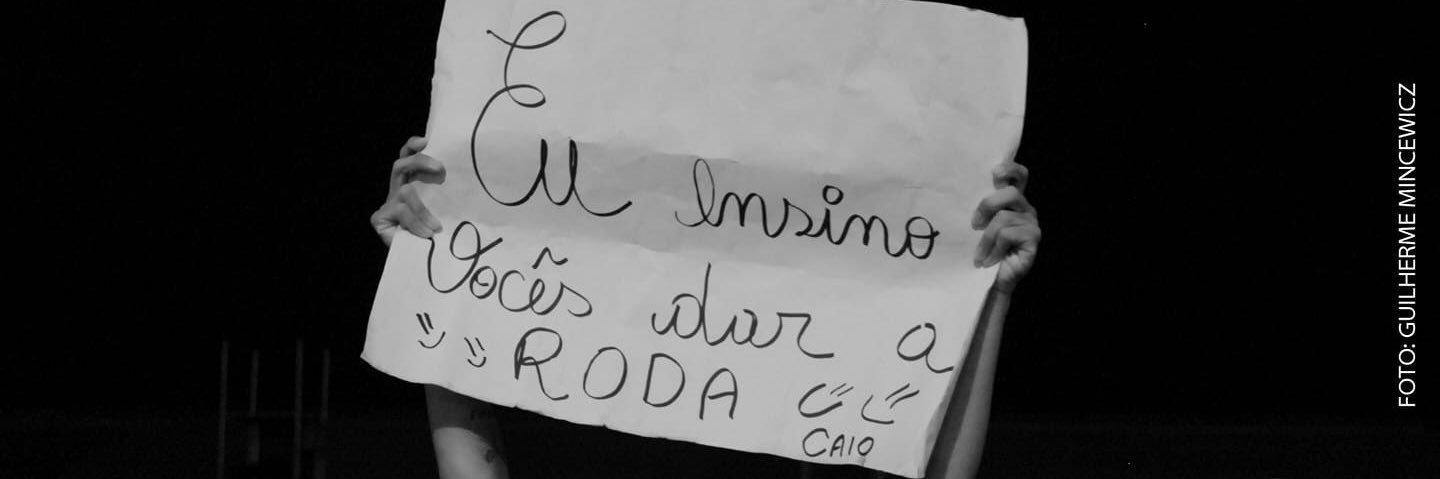 Eu Insino
Vocẽs dar a
RODA
CAIO
FOTO: GUILHERME MINCEWICZ